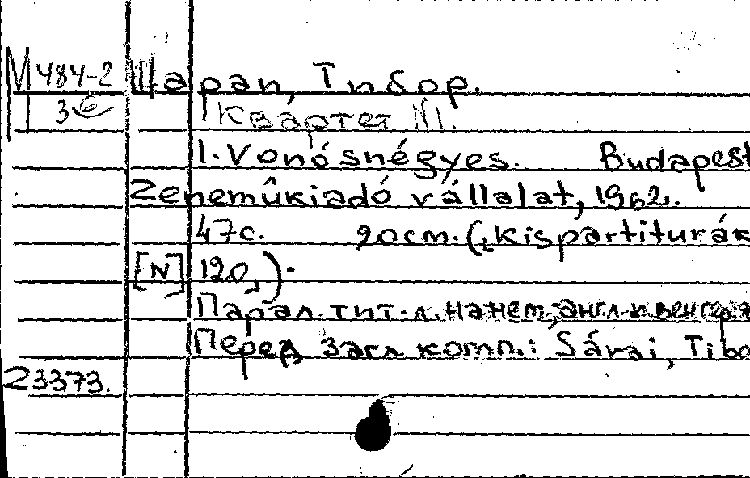 М 484-2 Шараи, Тибор.
36 Квартет №1.
1. Vonósnégyes. Budapest
Zeneműkiadó vállalat, 1962.
47с. 20cm. („Kispartiturák
[N] 120„).
Парал. тит. л. на нем., англ. и венгер. я
Перед загл. комп.: Sárai, Tibo
23373.